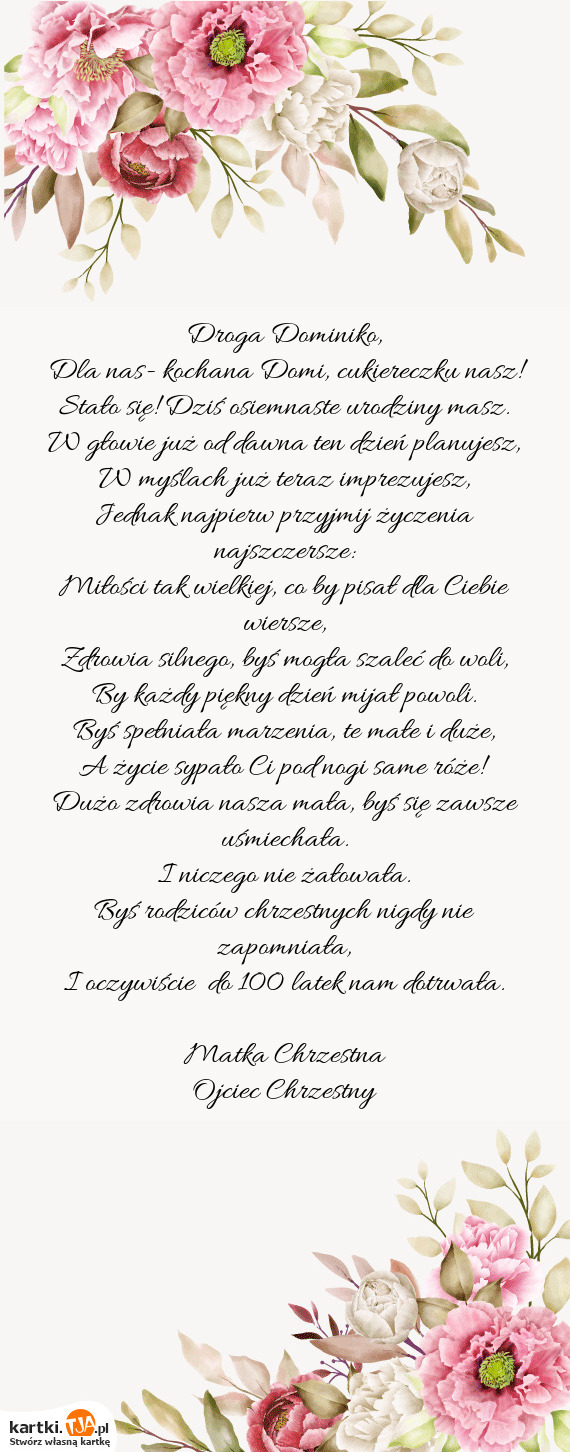 Droga Dominiko,
Dla nas- kochana Domi, cukiereczku nasz!
Stało się! Dziś osiemnaste urodziny masz.
W głowie już od dawna ten dzień planujesz,
W myślach już teraz imprezujesz,
Jednak najpierw przyjmij życzenia
najszczersze:
Miłości tak wielkiej, co by pisał dla Ciebie
wiersze,
Zdrowia silnego, byś mogła szaleć do woli,
By każdy piękny dzień mijał powoli.
Byś spełniała marzenia, te małe i duże,
A życie sypało Ci pod nogi same róże!
Dużo zdrowia nasza mała, byś się zawsze
uśmiechała.
I niczego nie żałowała.
Byś rodziców chrzestnych nigdy nie
zapomniała,
I oczywiście  do 100 latek nam dotrwała.
Matka Chrzestna
Ojciec Chrzestny
kartki.TJA.pl
Stwórz własną kartkę